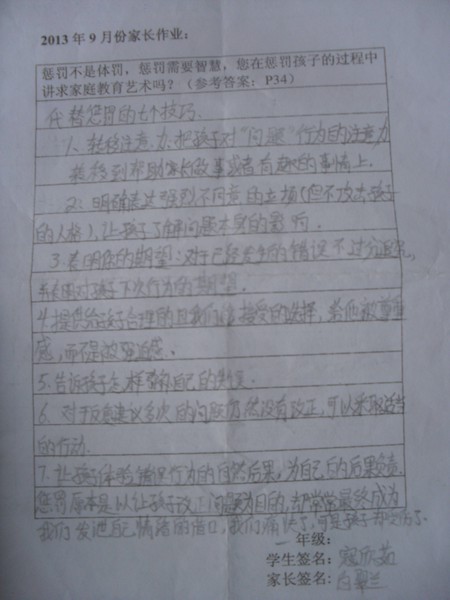 2013年9月份家长作业：
惩罚不是体罚，惩罚需要智慧，您在惩罚孩子的过程中
讲求家庭教育艺术吗？（参考答案：P34）
代替惩罚的七个技巧.
1、转移注意力.把孩子对"问题"行为的注意力
转移到帮助家长做事或者有趣的事情上.
2：明确表达强烈不同意的立场(但不攻击孩子
的人格),让孩子了解问题本身的影响.
3.表明你的期望:对于已经发生的错误不过分追究,
对孩子下次行为的期望.
4.提供给孩子合理的且我们能接受的选择,给他被尊重
感,而不是被强迫感.
5.告诉孩子怎样弥补自己的失误.
6.对于反复建议多次的问题仍然没有改正,可以采取适当
的行动.
7.让孩子体验错误行为的自然后果,为自己的后果负责.
惩罚原本是以让孩子改正问题为目的,却常常最终成为
我们发泄自己情绪的借口,我们痛快了,可是孩子却受伤了.
一年级：
学生签名：寇欣茹
家长签名：白翠兰